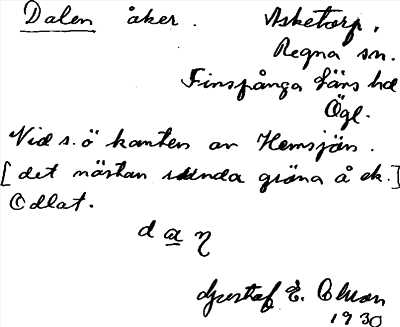 Dalen åker. Asketorp,
Regna sn.
Finspånga läns hd
Ögl.
Vid s.ö kanten av Hemsjön.
[det nästan runda gröna å ek.]
Odlat.
d a η
Gustaf E. Ohman
1930